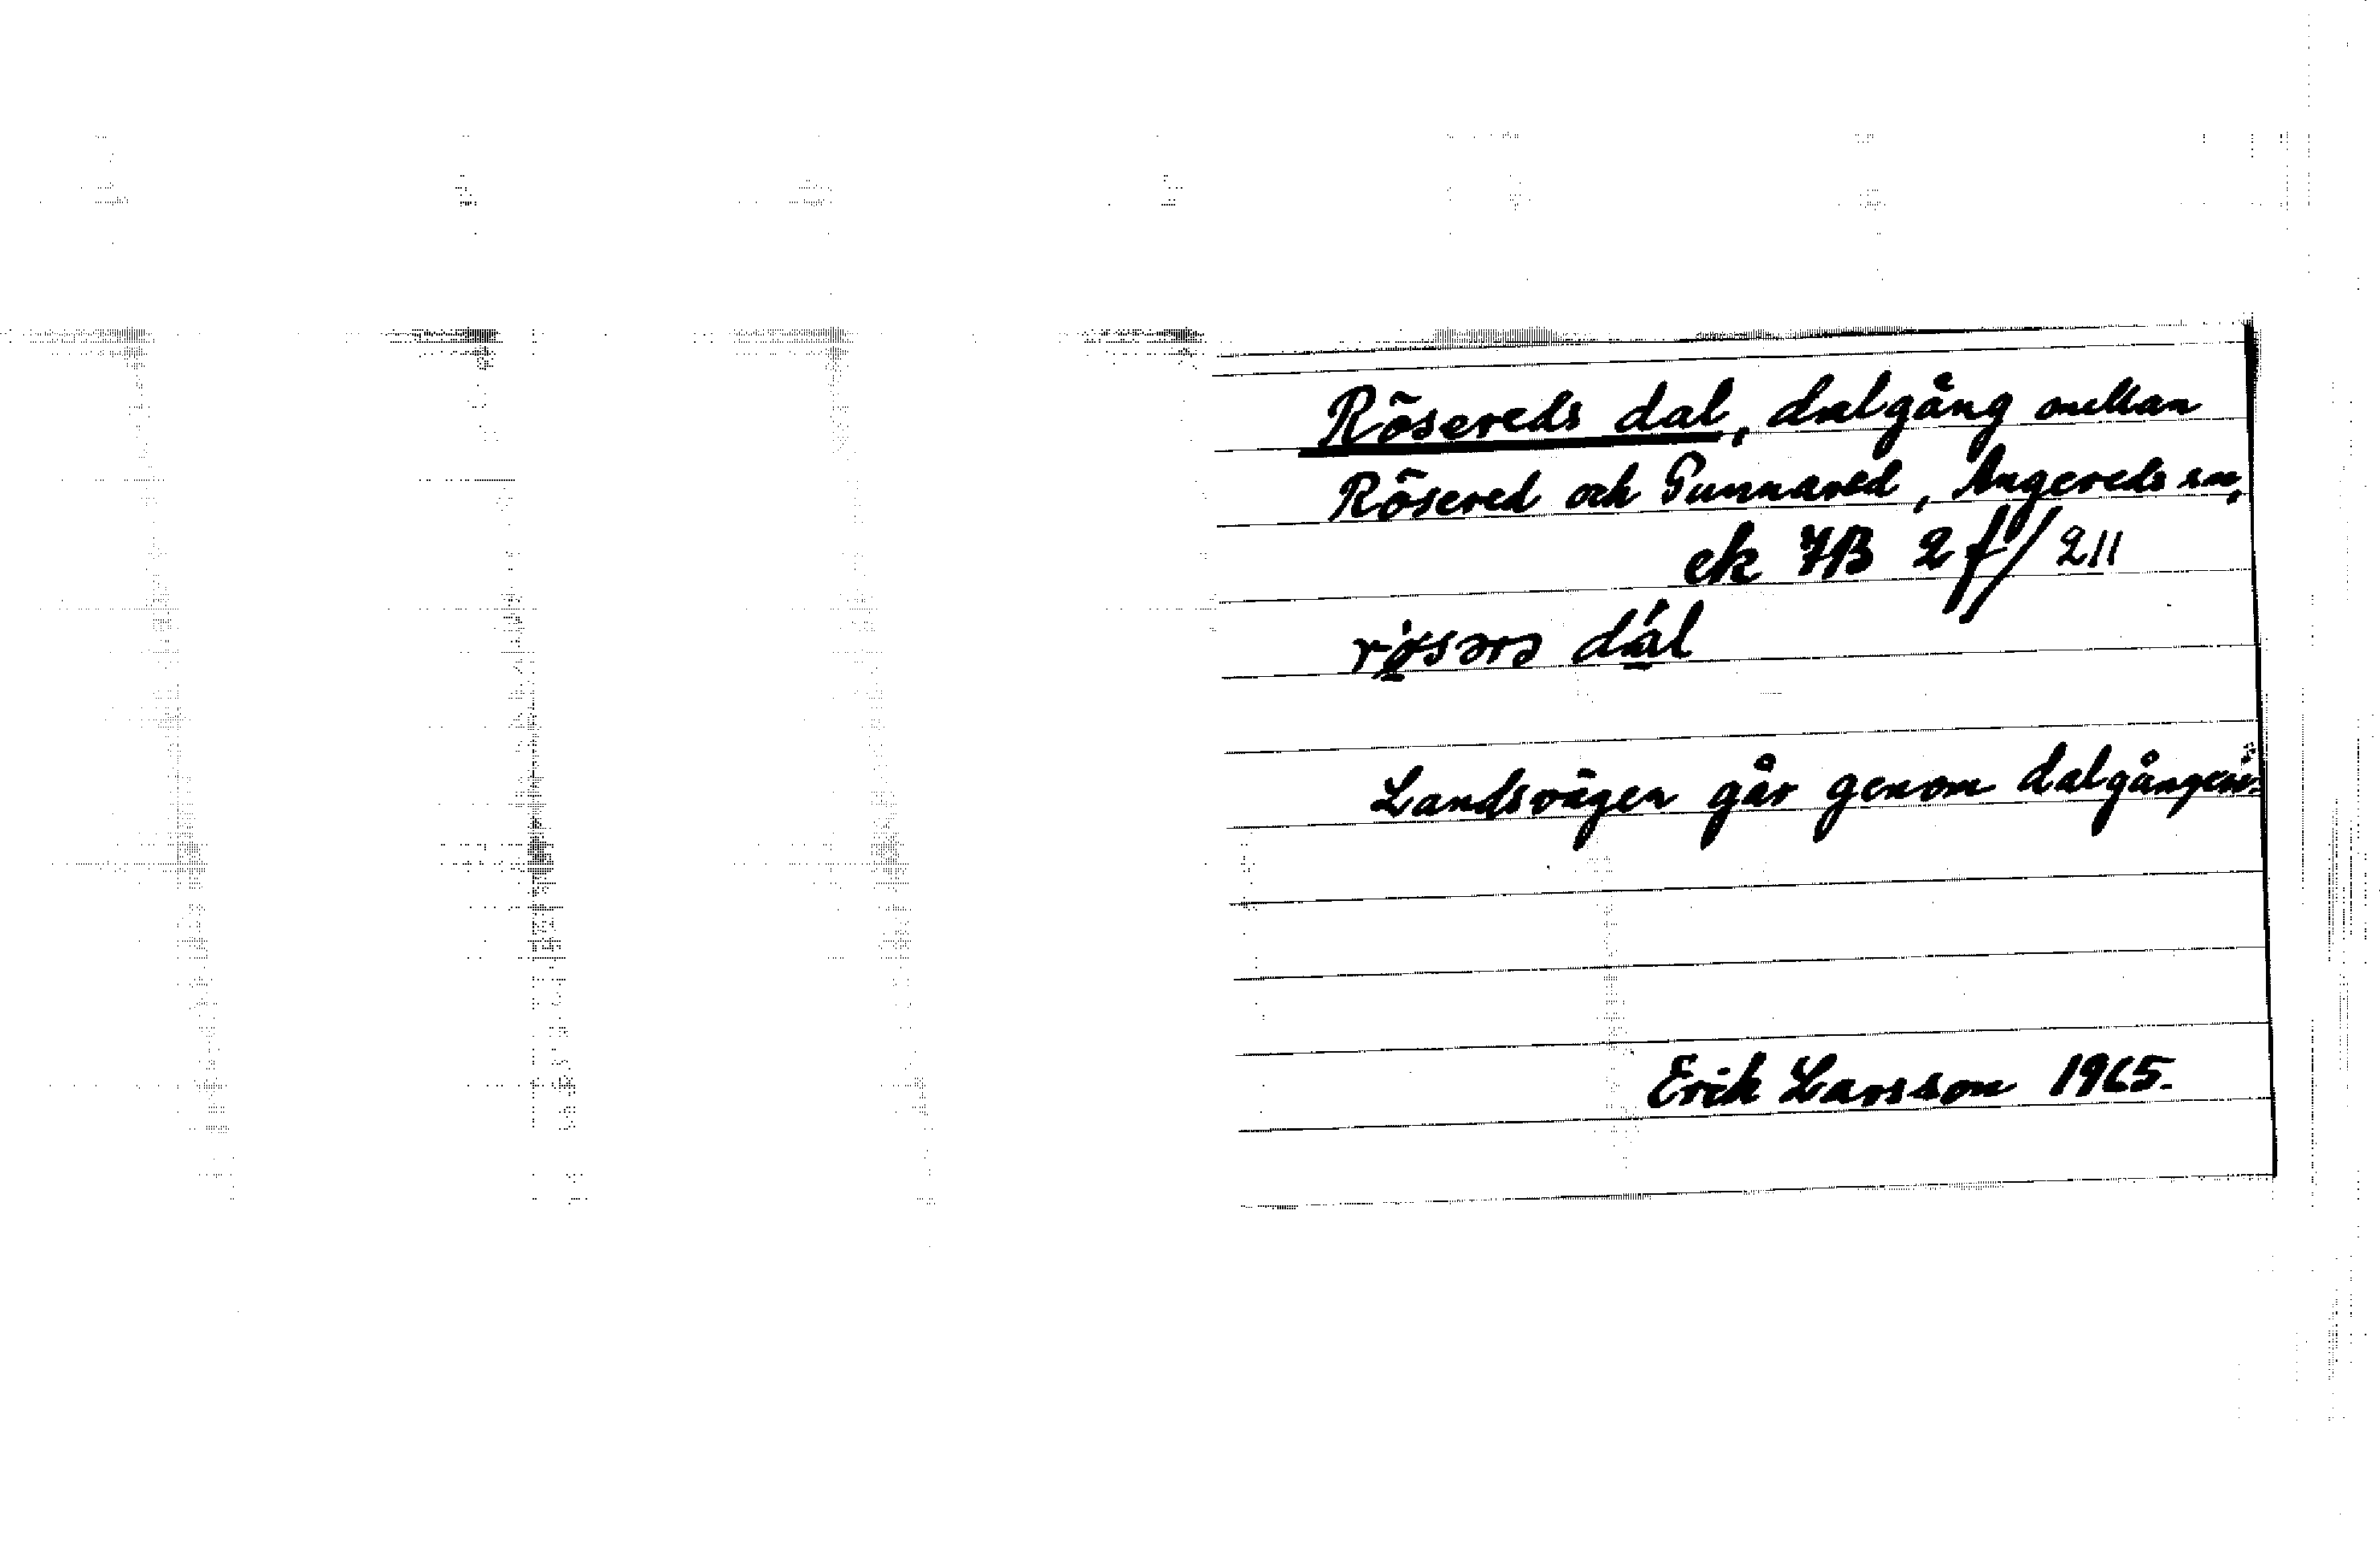 Rösereds dal, dalgång mellan
Rösered och Gunnared, Angereds sn,
ek 7B 2f/211
rø̀sərə dál
Landsvägen går genom dalgången.
Erik Larsson 1965.